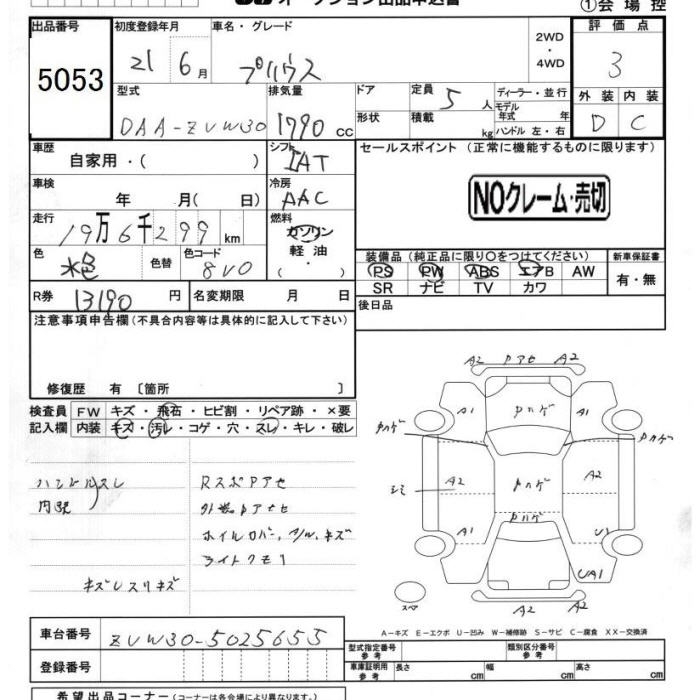 オークション出品申込書 ①会場控
出品番号 初度登録年月 車名・グレード 2WD・4WD 評価点
5053 21 6月 プリウス 3
型式 排気量 ドア 定員 5人 ディーラー・並行 外装 内装
DAA-ZVW30 1790cc 形状 積載 kg モデル年式 年 ハンドル 左・右 D C
車歴 自家用・( ) シフト IAT セールスポイント (正常に機能するものに限ります)
車検 年 月( 日) 冷房 AAC NOクレーム・売切
走行 19万6千299km 燃料 ガソリン・軽油
色 水色 色替 色コード 8V0 装備品(純正品に限り○をつけてください) 新車保証書
PS PW ABS エアB AW 有・無
SR ナビ TV カワ
R券 13190円 名変期限 月 日 後日品
注意事項申告欄(不具合内容等は具体的に記入して下さい)
修復歴 有 〔箇所 〕
検査員 FW キズ・飛石・ヒビ割・リペア跡・×要
記入欄 内装 キズ・汚レ・コゲ・穴・スレ・キレ・破レ
ハンドルスレ RスポPアセ
ホイルカバー, A/W, キズ
ライトクモリ
A2 Pアセ A2
A1 Pハゲ A1
Pハゲ Pハゲ
シミ A2 Pハゲ A2
Pハゲ
A1 U1
UA1
スペア A2 A2
A−キズ E−エクボ U−凹み W−補修跡 S−サビ C−腐食 XX−交換済
車台番号 ZVW30-5025655
型式指定番号 参考 類別区分番号 参考
登録番号 車庫証明用 参考 長さ cm 幅 cm 高さ cm
希望出品コーナー(コーナーは各会場により異なります。)